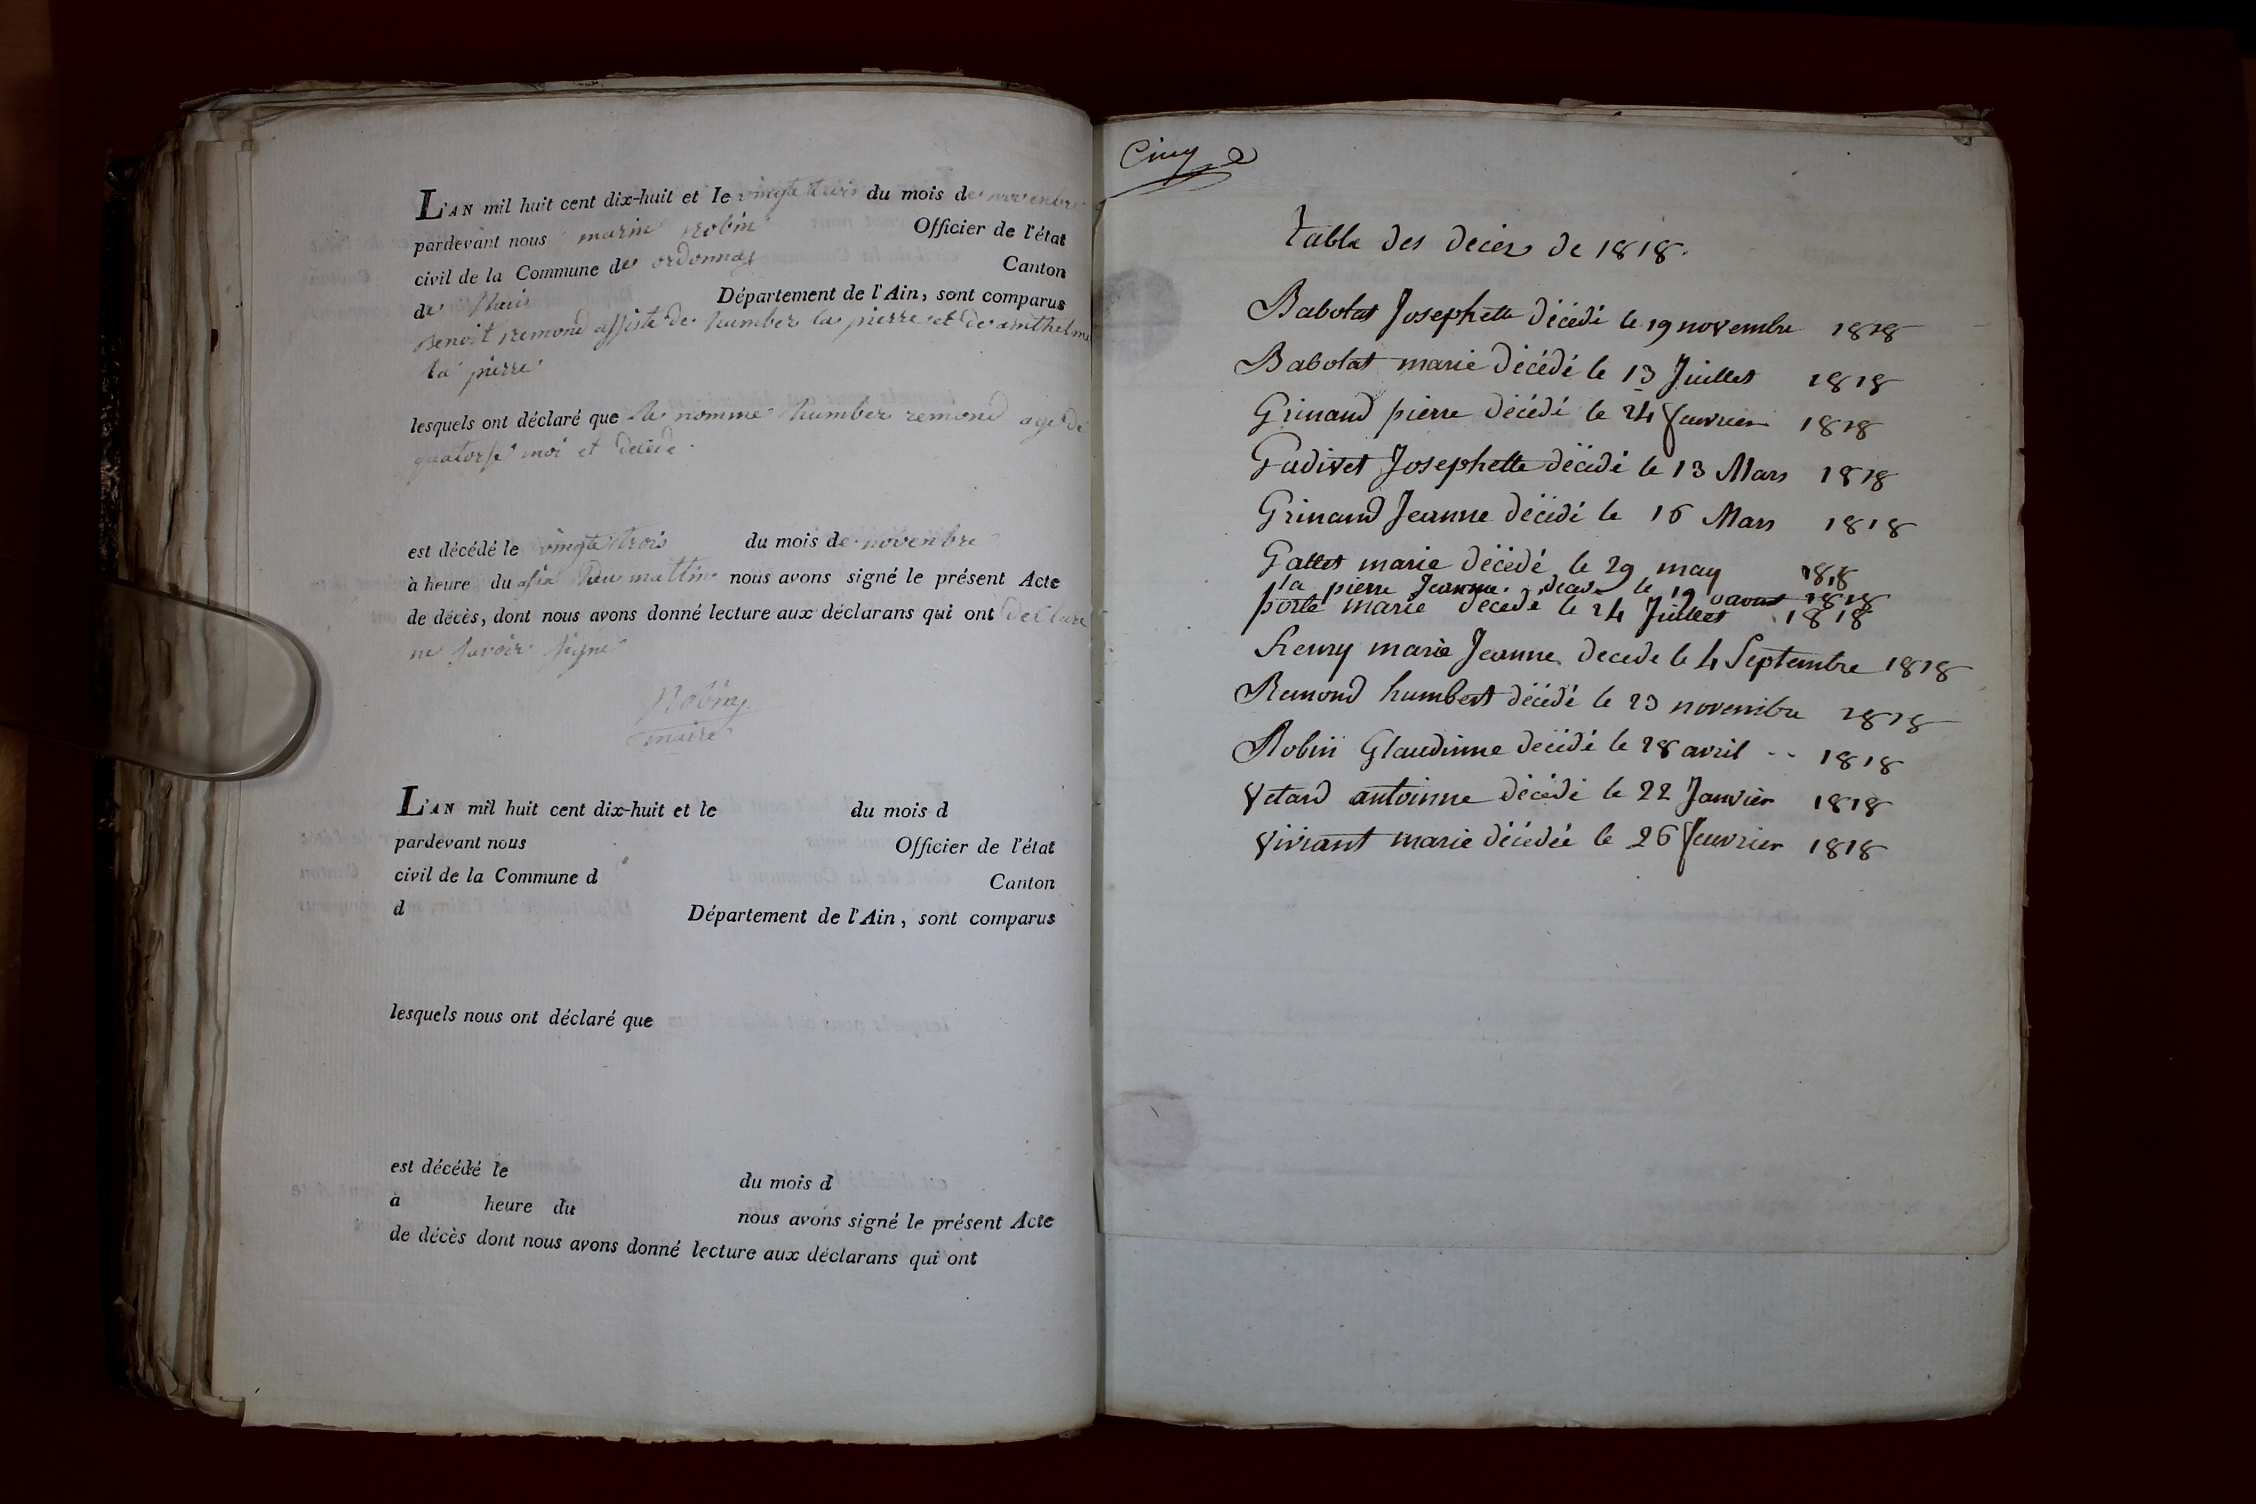 L'AN mil huit cent dix-huit et le vingte trois du mois de novenbre
pardevant nous marin robin Officier de l'état
civil de la Commune de ordonnas Canton
de Département de l'Ain, sont comparus
Benoit remond assisté de humber la pierre et de anthelme
la pierre
lesquels ont déclaré que le nomme humber remond age de
quatorse moi et décédé
est décédé le vingte trois du mois de novenbre
à heure du six du mattin nous avons signé le présent Acte
de décès, dont nous avons donné lecture aux déclarans qui ont declare
ne savoir signe
Robin
maire
L'AN mil huit cent dix-huit et le du mois d
pardevant nous Officier de l'état
civil de la Commune d Canton
d Département de l'Ain, sont comparus
lesquels nous ont déclaré que
est décédé le du mois d
à heure du nous avons signé le présent Acte
de décès dont nous avons donné lecture aux déclarans qui ont
Cinq
Table des décès de 1818.
Babolat Josephette décédé le 19 novembre 1818
Babolat marie décédé le 13 Juillet 1818
Grinand pierre décédé le 24 fevrier 1818
Gudivet Josephette décédé le 13 Mars 1818
Grinand Jeanne décédé le 16 Mars 1818
Gallet marie décédé le 29 may 1818
la pierre Jeanne decede le 19 1818
porte marie decedé le 24 Juillet 1818
henry marie Jeanne decede le 4 Septembre 1818
Remond humbert décédé le 23 novembre 1818
Robin Glaudinne decédé le 28 avril -- 1818
Vetard antoinne décédé le 22 Janvier 1818
Viviant marie décédée le 26 fevrier 1818